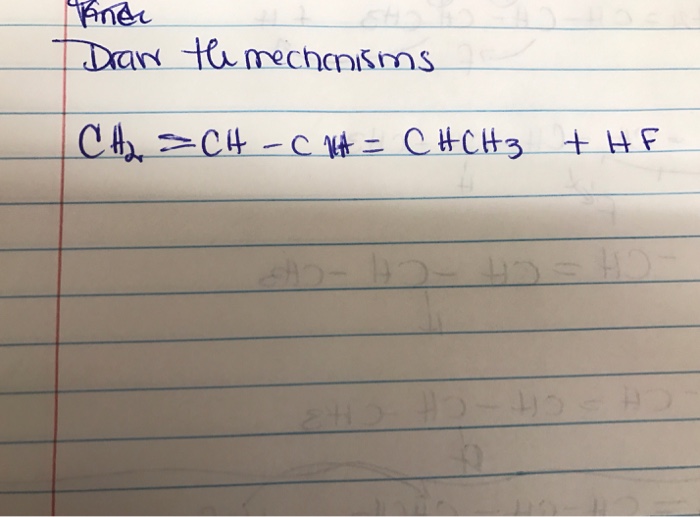 Draw the mechanisms
CH2 = CH - CH = CHCH3 + HF